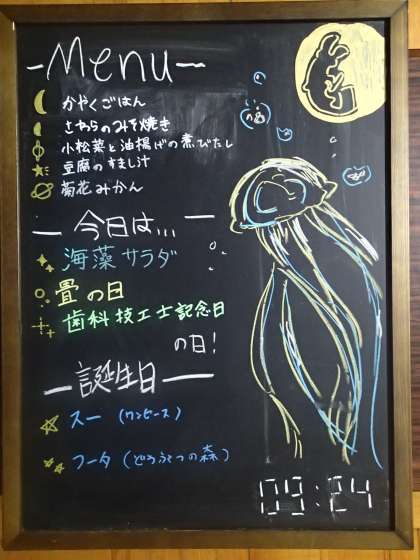 Menu
かやくごはん
さわらのみそ焼き
小松菜と油揚げの煮びたし
豆腐のすまし汁
菊花みかん
今日は...
海藻サラダ
畳の日
歯科技工士記念日
の日!
誕生日
スー (ワンピース)
フータ (どうぶつの森)
09:24